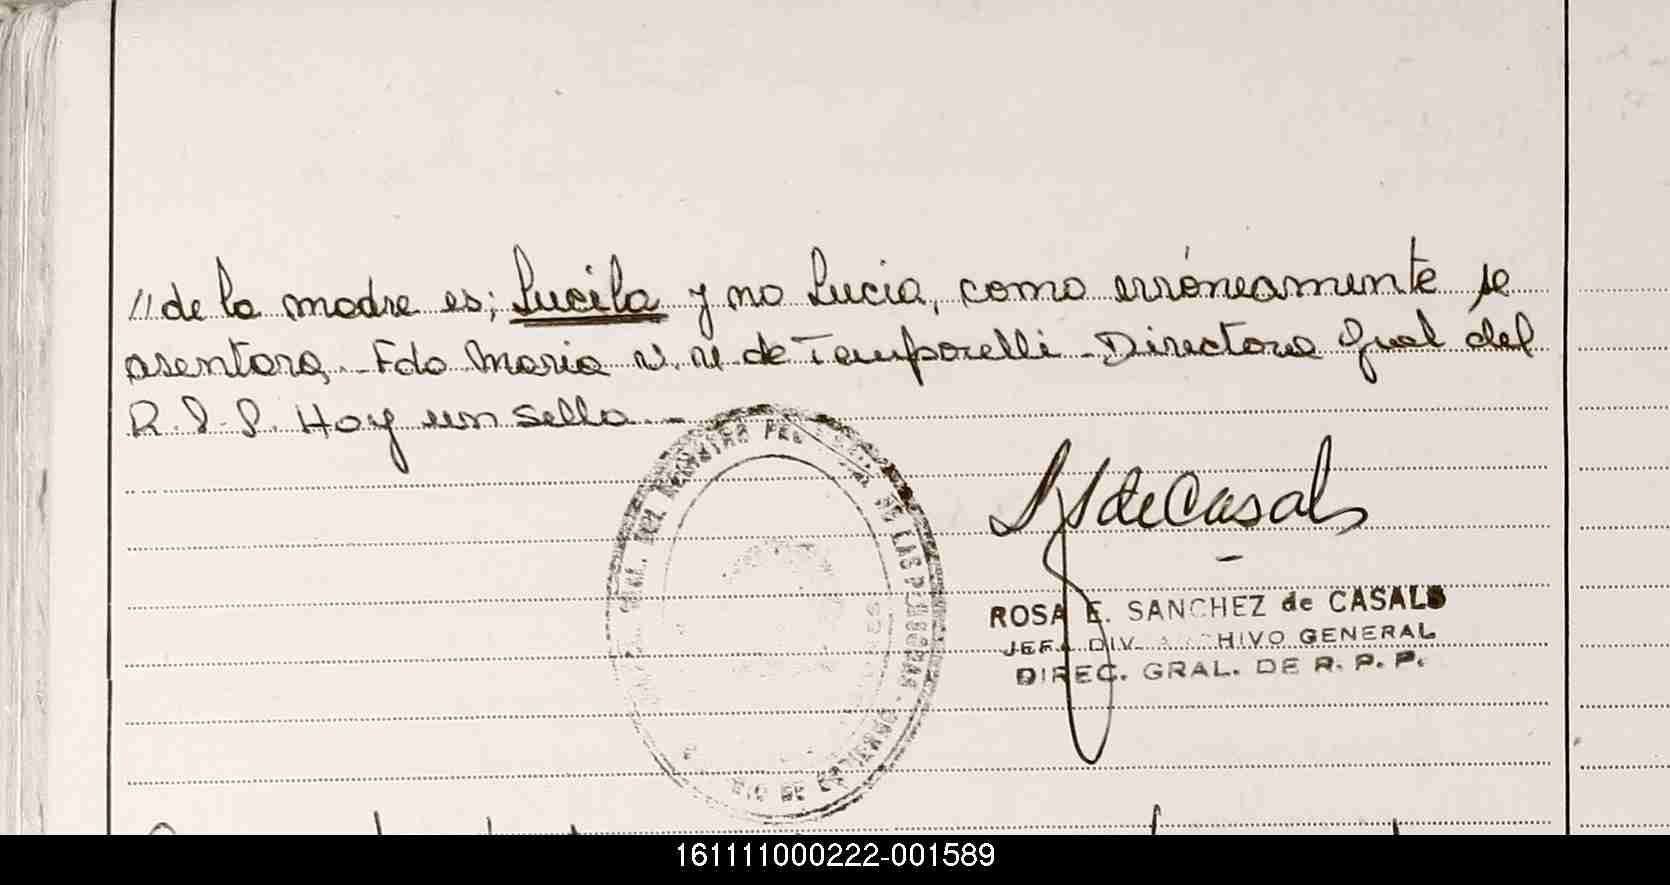 //de la madre es; Lucila y no Lucia, como erróneamente se
asentara. Fdo Maria N. N. de Temporelli - Directora Gral del
R.P.P. Hay un sello. -
S de Casals
ROSA E. SANCHEZ de CASALS
JEFA DIV. ARCHIVO GENERAL
DIREC. GRAL. DE R. P. P.
GRAL. DEL REGISTRO DE LAS PERSONAS
161111000222-001589